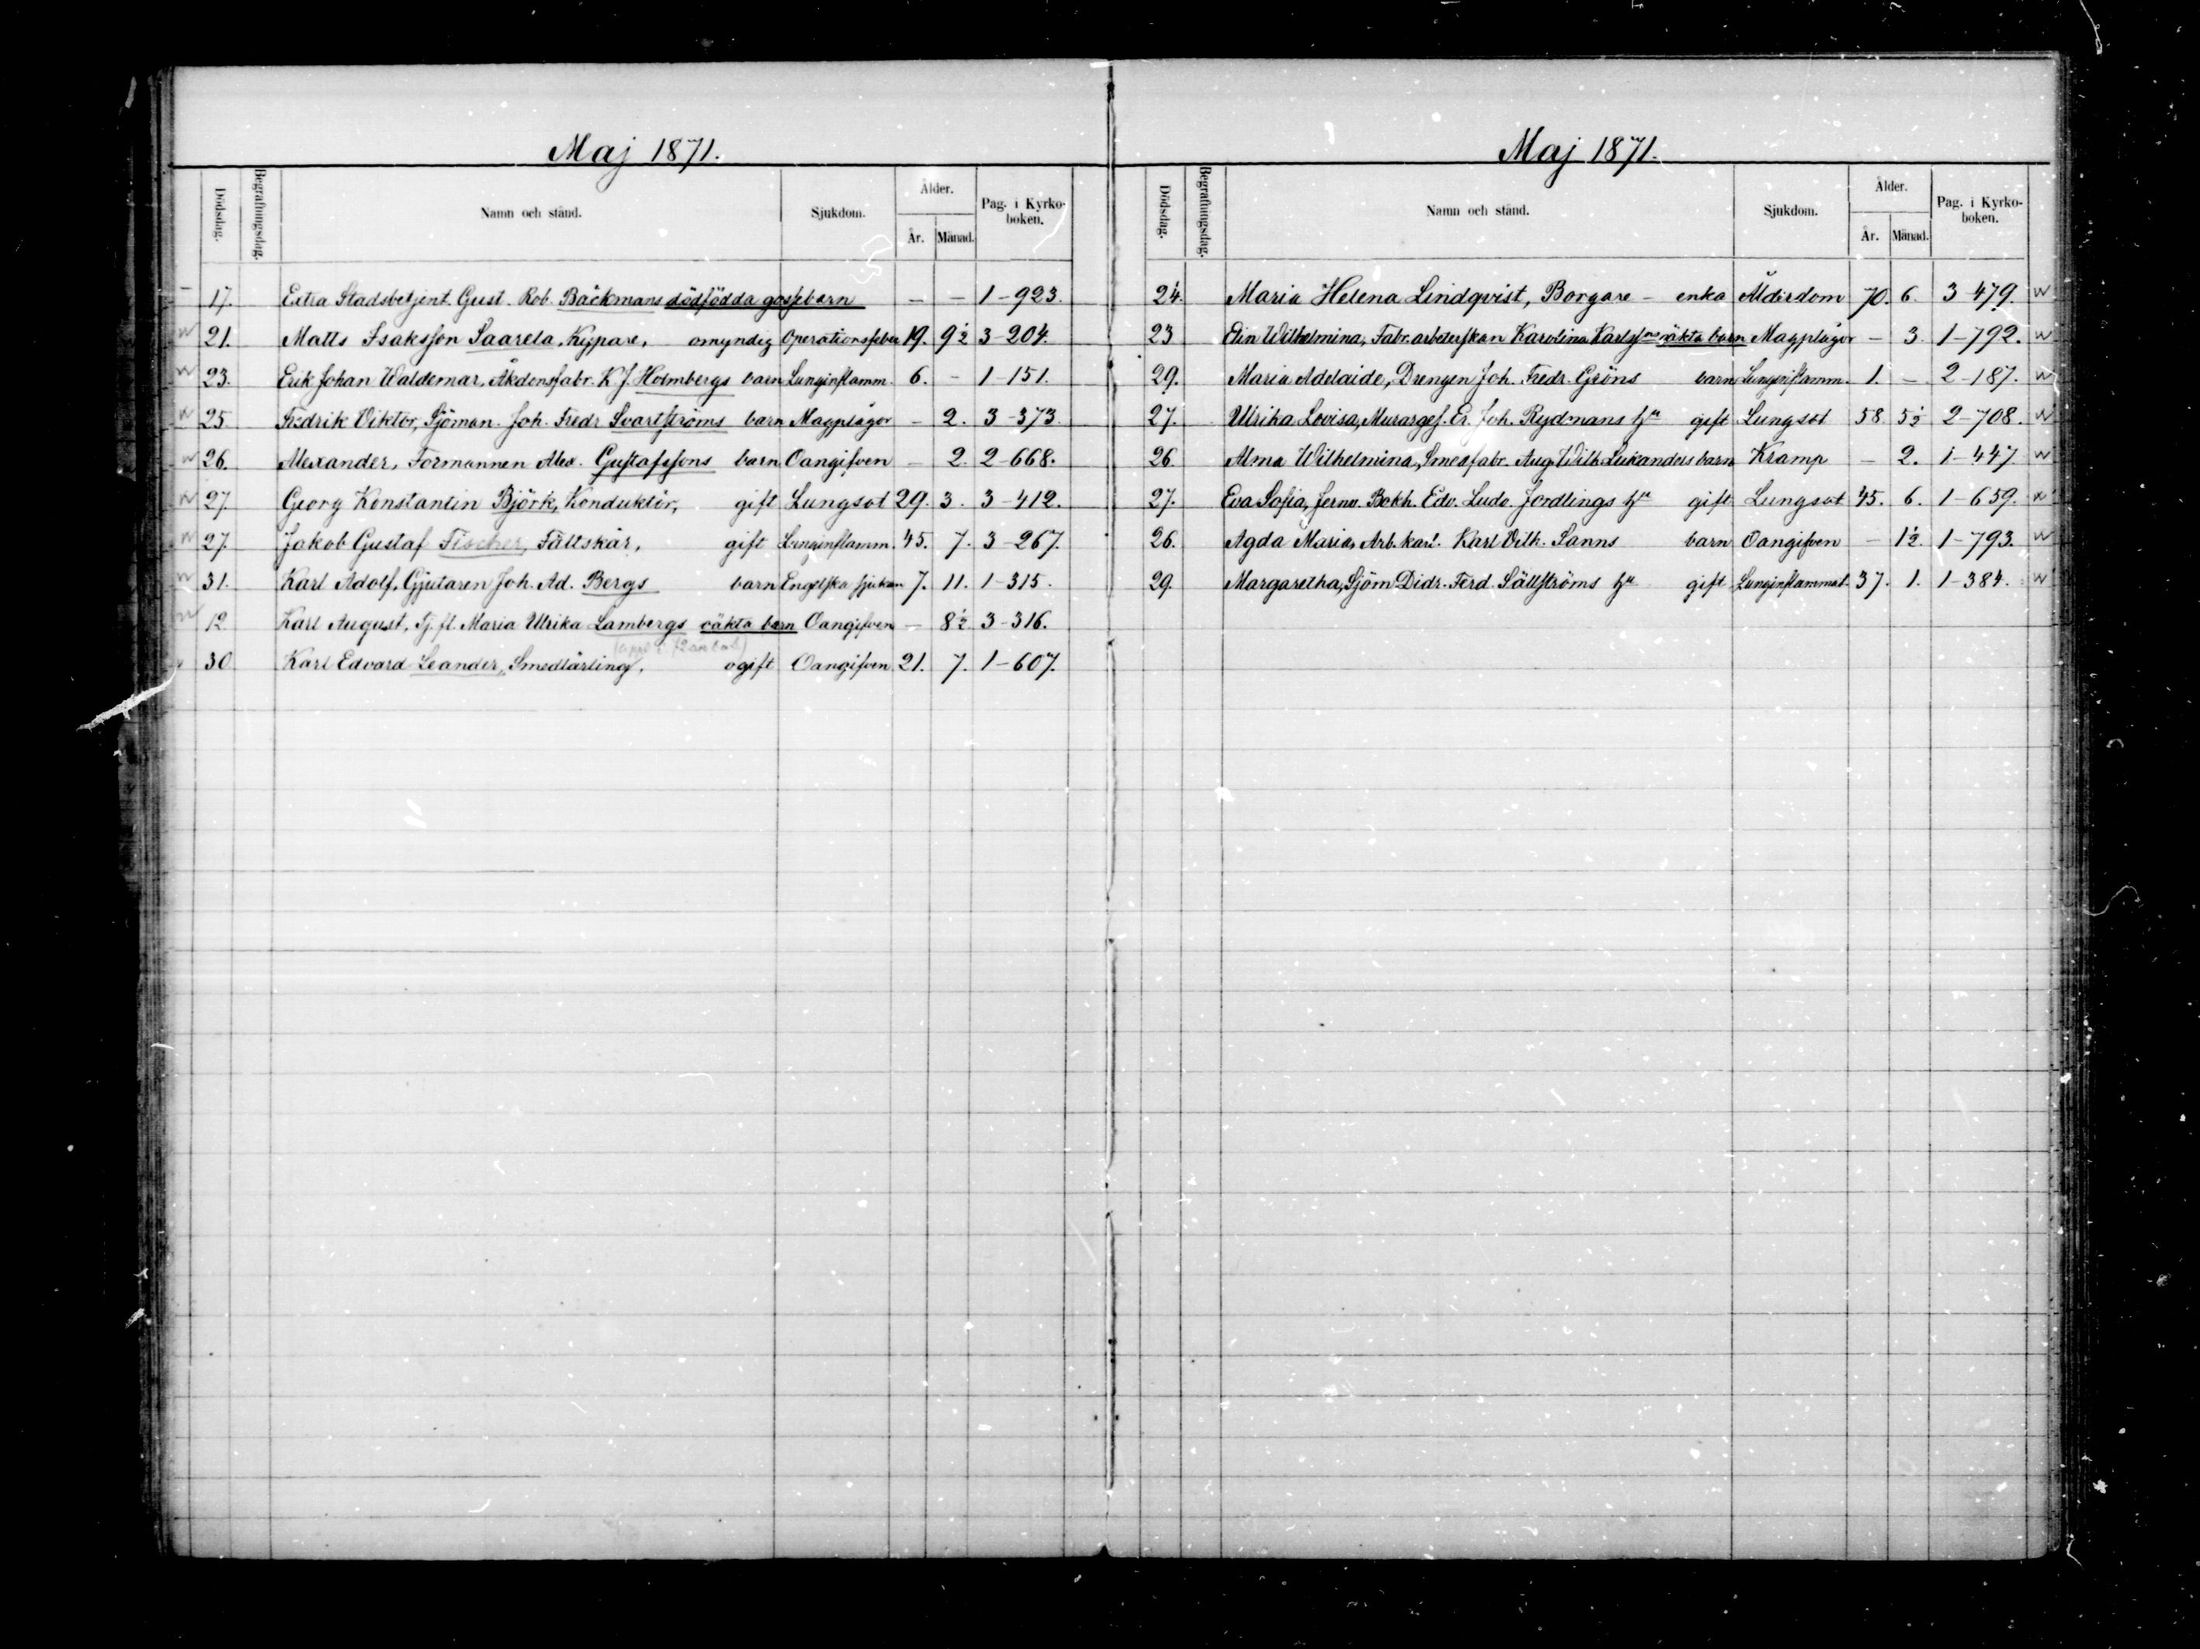 Maj 1871.
Dödsdag. Begrafningsdag. Namn och stånd. Sjukdom. Ålder. År. Månad. Pag. i Kyrko-boken.
17. Extra Stadsbetjent Gust. Rob. Bäckmans dödfödda gossebarn — — 1-923.
21. Matts Isaksson Saarela, Kypare, omyndig Operationsfeber 19. 9½ 3-204.
23. Erik Johan Waldemar, Åkdonsfabr. K. J. Holmbergs barn Lunginflamm. 6. - 1-151.
25. Fredrik Viktor, Sjöman. Joh. Fredr Svartströms barn Magplågor - 2. 3-373.
26. Alexander, Formannen Alex. Gustafssons barn Oangifven - 2. 2-668.
27. Georg Konstantin Björk, Konduktör, gift Lungsot 29. 3. 3-412.
27. Jakob Gustaf Fischer, Fältskär, gift Lunginflamm. 45. 7. 3-267.
31. Karl Adolf, Gjutaren Joh. Ad. Bergs barn Engelska sjukan 7. 11. 1-315.
12. Karl August, Tj. fl. Maria Ulrika Lambergs oäkta barn Oangifven - 8½ 3-316.
30. Karl Edvard Leander, Smedlärling, ogift Oangifven 21. 7. 1-607.
Maj 1871.
Dödsdag. Begrafningsdag. Namn och stånd. Sjukdom. Ålder. År. Månad. Pag. i Kyrko-boken.
24. Maria Helena Lindqvist, Borgare - enka Ålderdom 70. 6. 3-479.
23 Elin Wilhelmina, Fabr.arbeterskan Karolina Karlss:ns oäkta barn Magplågor - 3. 1-792.
29. Maria Adelaide, Drengen Joh. Fredr. Gröns barn Lunginflamm. 1. - 2-187.
27. Ulrika Lovisa, Murarges. Er. Joh. Rydmans hu gift Lungsot 58. 5½ 2-708.
26. Alma Wilhelmina, Smedsfabr. Aug. Wilh. Lukanders barn Kramp - 2. 1-447
27. Eva Sofia, Jernv. Bokh. Edv. Ludv. Jordlings hu gift Lungsot 45. 6. 1-659.
26. Agda Maria, Arb. karl. Karl Vilh. Sanns barn Oangifven - 1½. 1-793.
29. Margaretha, Sjöm Didr. Ferd. Sällströms hu gift Lunginflammat. 37. 1. 1-384.